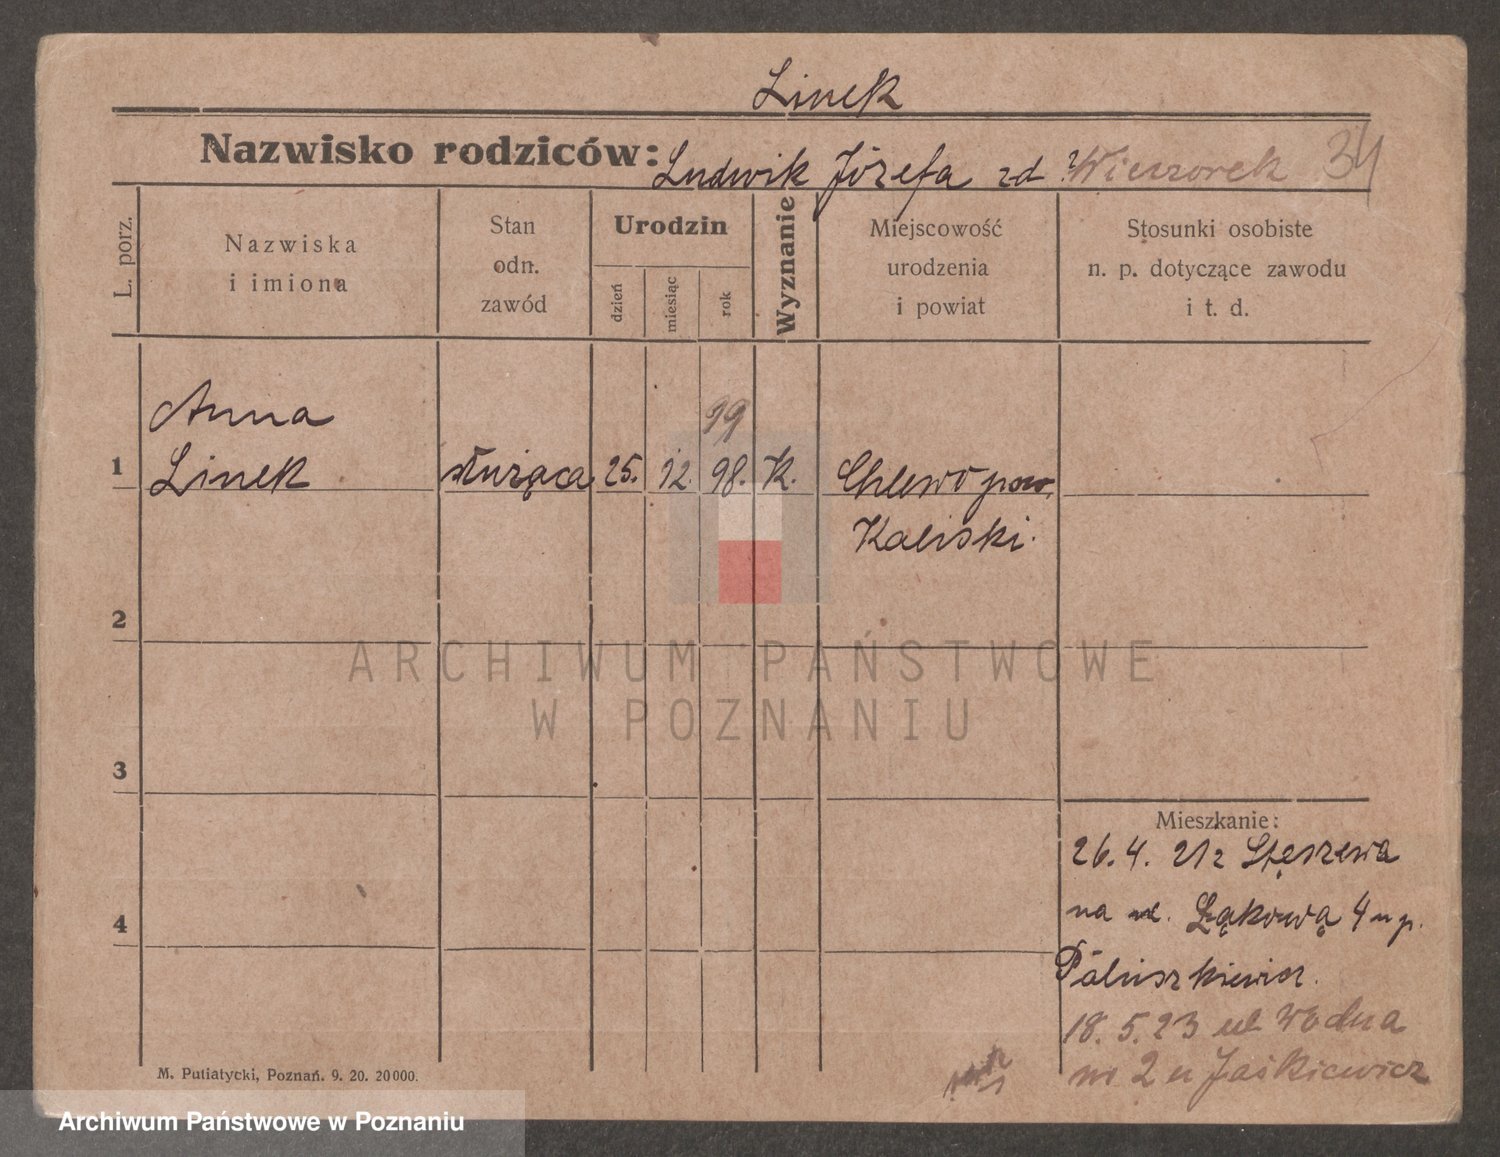 Linek
Nazwisko rodziców: Ludwik Józefa zd. Wieczorek 34
L. porz.
Nazwiska
i imiona
Stan
odn.
zawód
Urodzin
dzień
miesiąc
rok
Wyznanie
Miejscowość
urodzenia
i powiat
Stosunki osobiste
n. p. dotyczące zawodu
i t. d.
Anna
99
1 Linek służąca 25. 12. 98. K. Chlewo pow.
Kaliski.
2
ARCHIWUM PAŃSTWOWE
W POZNANIU
3
Mieszkanie:
26.4.21 z Stęszewa
na ul. Łąkową 4 u p.
4
Paluszkiewicz.
18.5.23 ul Wodna
nr 2 u Jaśkiewicz
M. Putiatycki, Poznań. 9. 20. 20000.
Archiwum Państwowe w Poznaniu